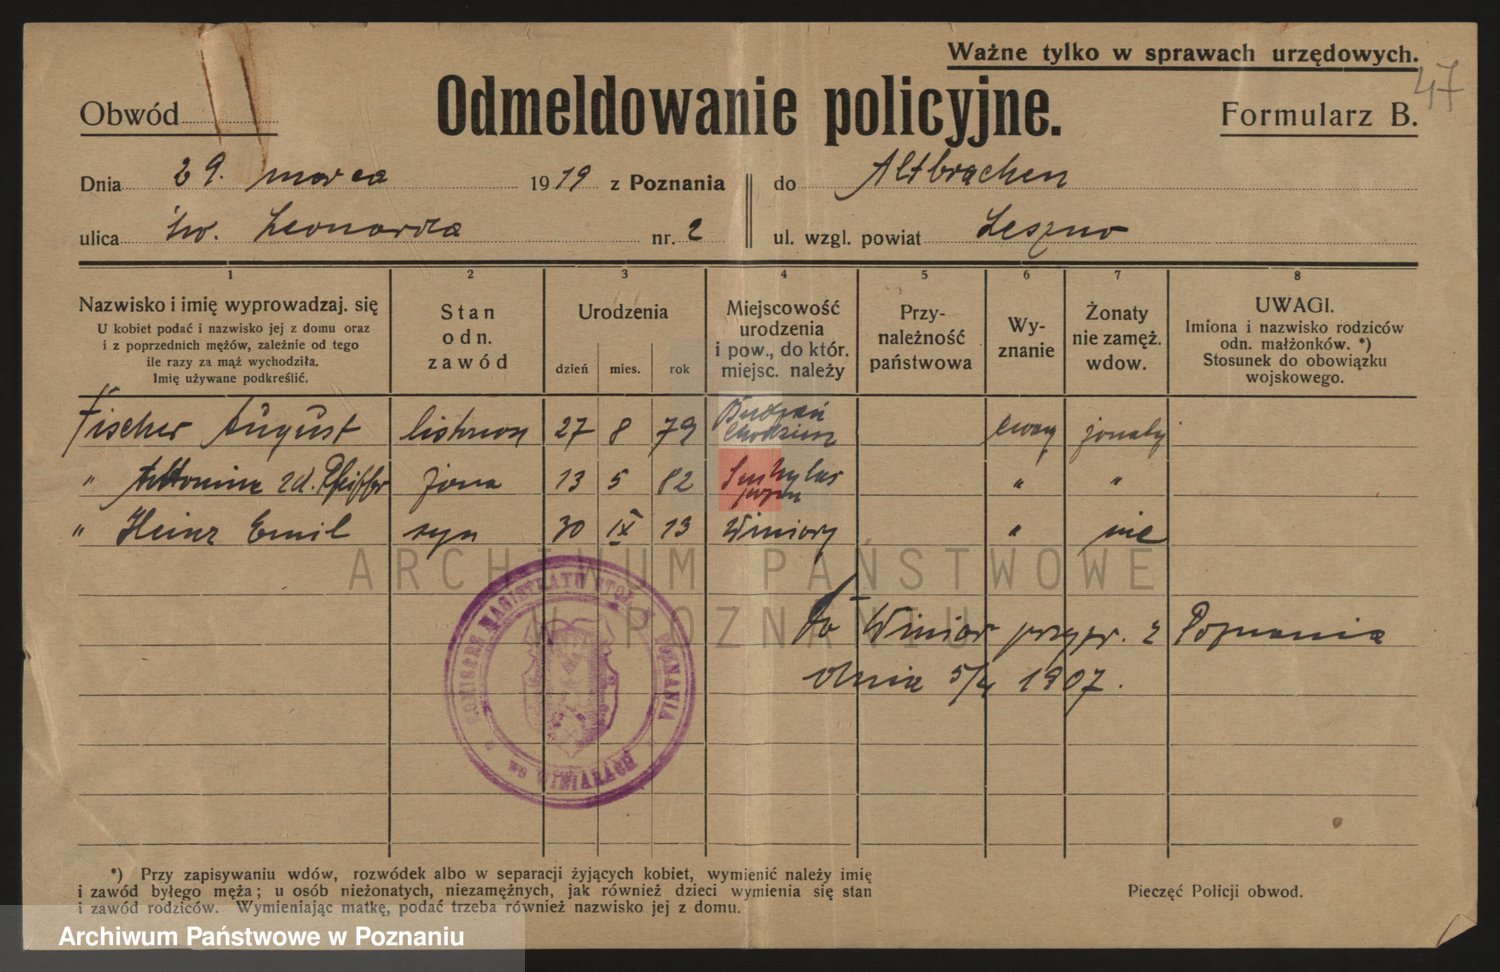 Ważne tylko w sprawach urzędowych.
47
Obwód
Odmeldowanie policyjne.
Formularz B.
Dnia 29. marca 1919 z Poznania do Altbrachen
ulica św. Leonarda nr. 2 ul. wzgl. powiat Leszno
1 2 3 4 5 6 7 8
Nazwisko i imię wyprowadzaj. się
U kobiet podać i nazwisko jej z domu oraz
i z poprzednich mężów, zależnie od tego
ile razy za mąż wychodziła.
Imię używane podkreślić.
Stan
odn.
zawód
Urodzenia
dzień mies. rok
Miejscowość
urodzenia
i pow., do któr.
miejsc. należy
Przy-
należność
państwowa
Wy-
znanie
Żonaty
nie zamęż.
wdow.
UWAGI.
Imiona i nazwisko rodziców
odn. małżonków. *)
Stosunek do obowiązku
wojskowego.
Fischer August 27 8 79 Budzyń Chodzież ewang żonaty
" zd. Pfeiffer żona 13 5 82 " "
" Heinz Emil syn 30 IX 13 Winiary " nie
ARCHIWUM PAŃSTWOWE
W POZNANIU
Do Winiar przypr. z Poznania
dnia 5/4 1907.
KOMISARZ MAGISTRATU STOŁ. M. POZNANIA
WE WINIARACH
*) Przy zapisywaniu wdów, rozwódek albo w separacji żyjących kobiet, wymienić należy imię
i zawód byłego męża; u osób nieżonatych, niezamężnych, jak również dzieci wymienia się stan
i zawód rodziców. Wymieniając matkę, podać trzeba również nazwisko jej z domu.
Pieczęć Policji obwod.
Archiwum Państwowe w Poznaniu